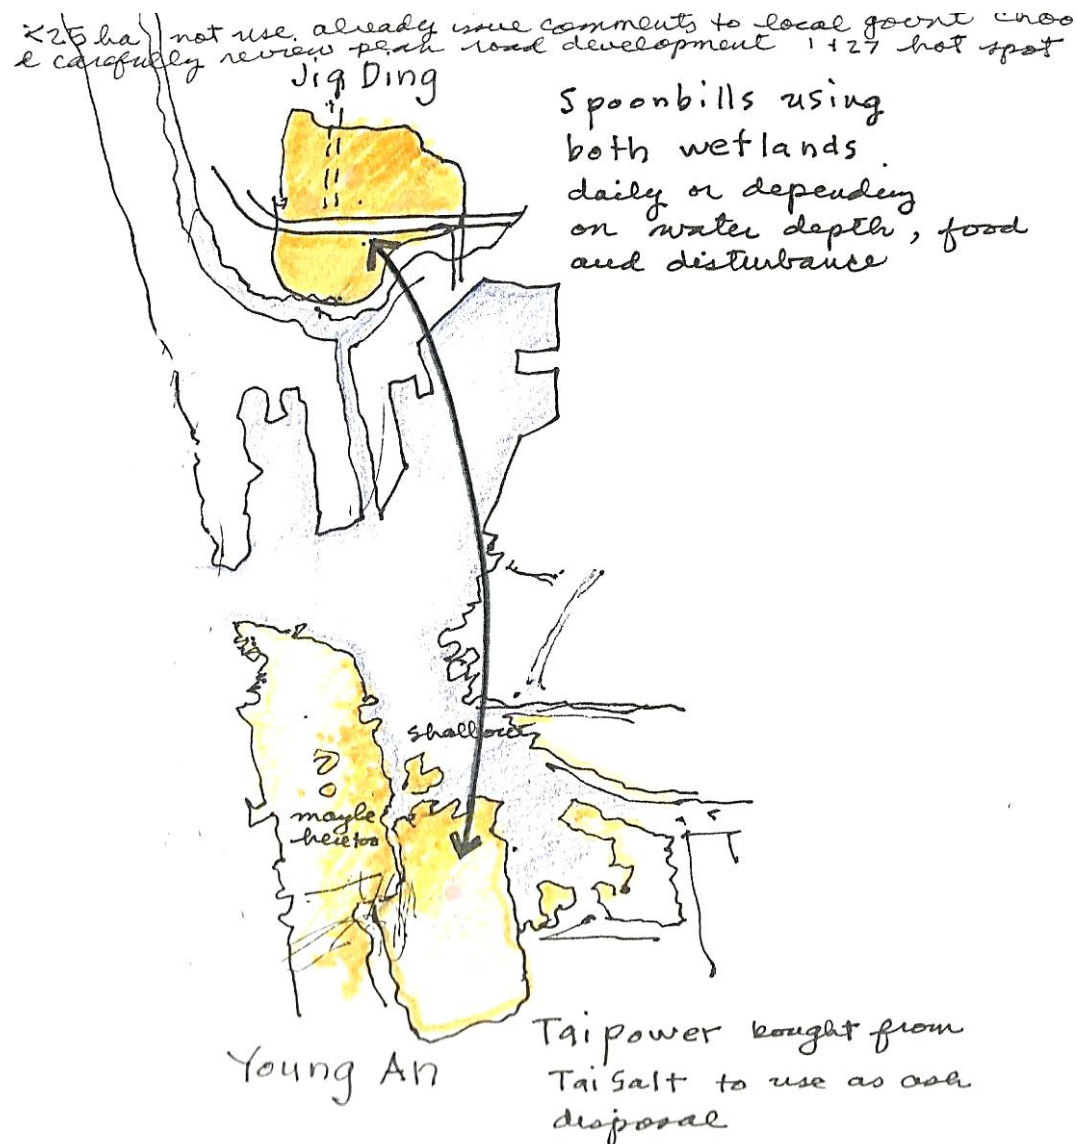 <25 ha not use, already issue comments to local gov'nt choo
carefully review plan road development 1+27 hot spot
Jia Ding
Spoonbills using
both wetlands.
daily or depending
on water depth, food
and disturbance
shallower
maybe
here too
Young An
Taipower bought from
Tai Salt to use as ash
disposal